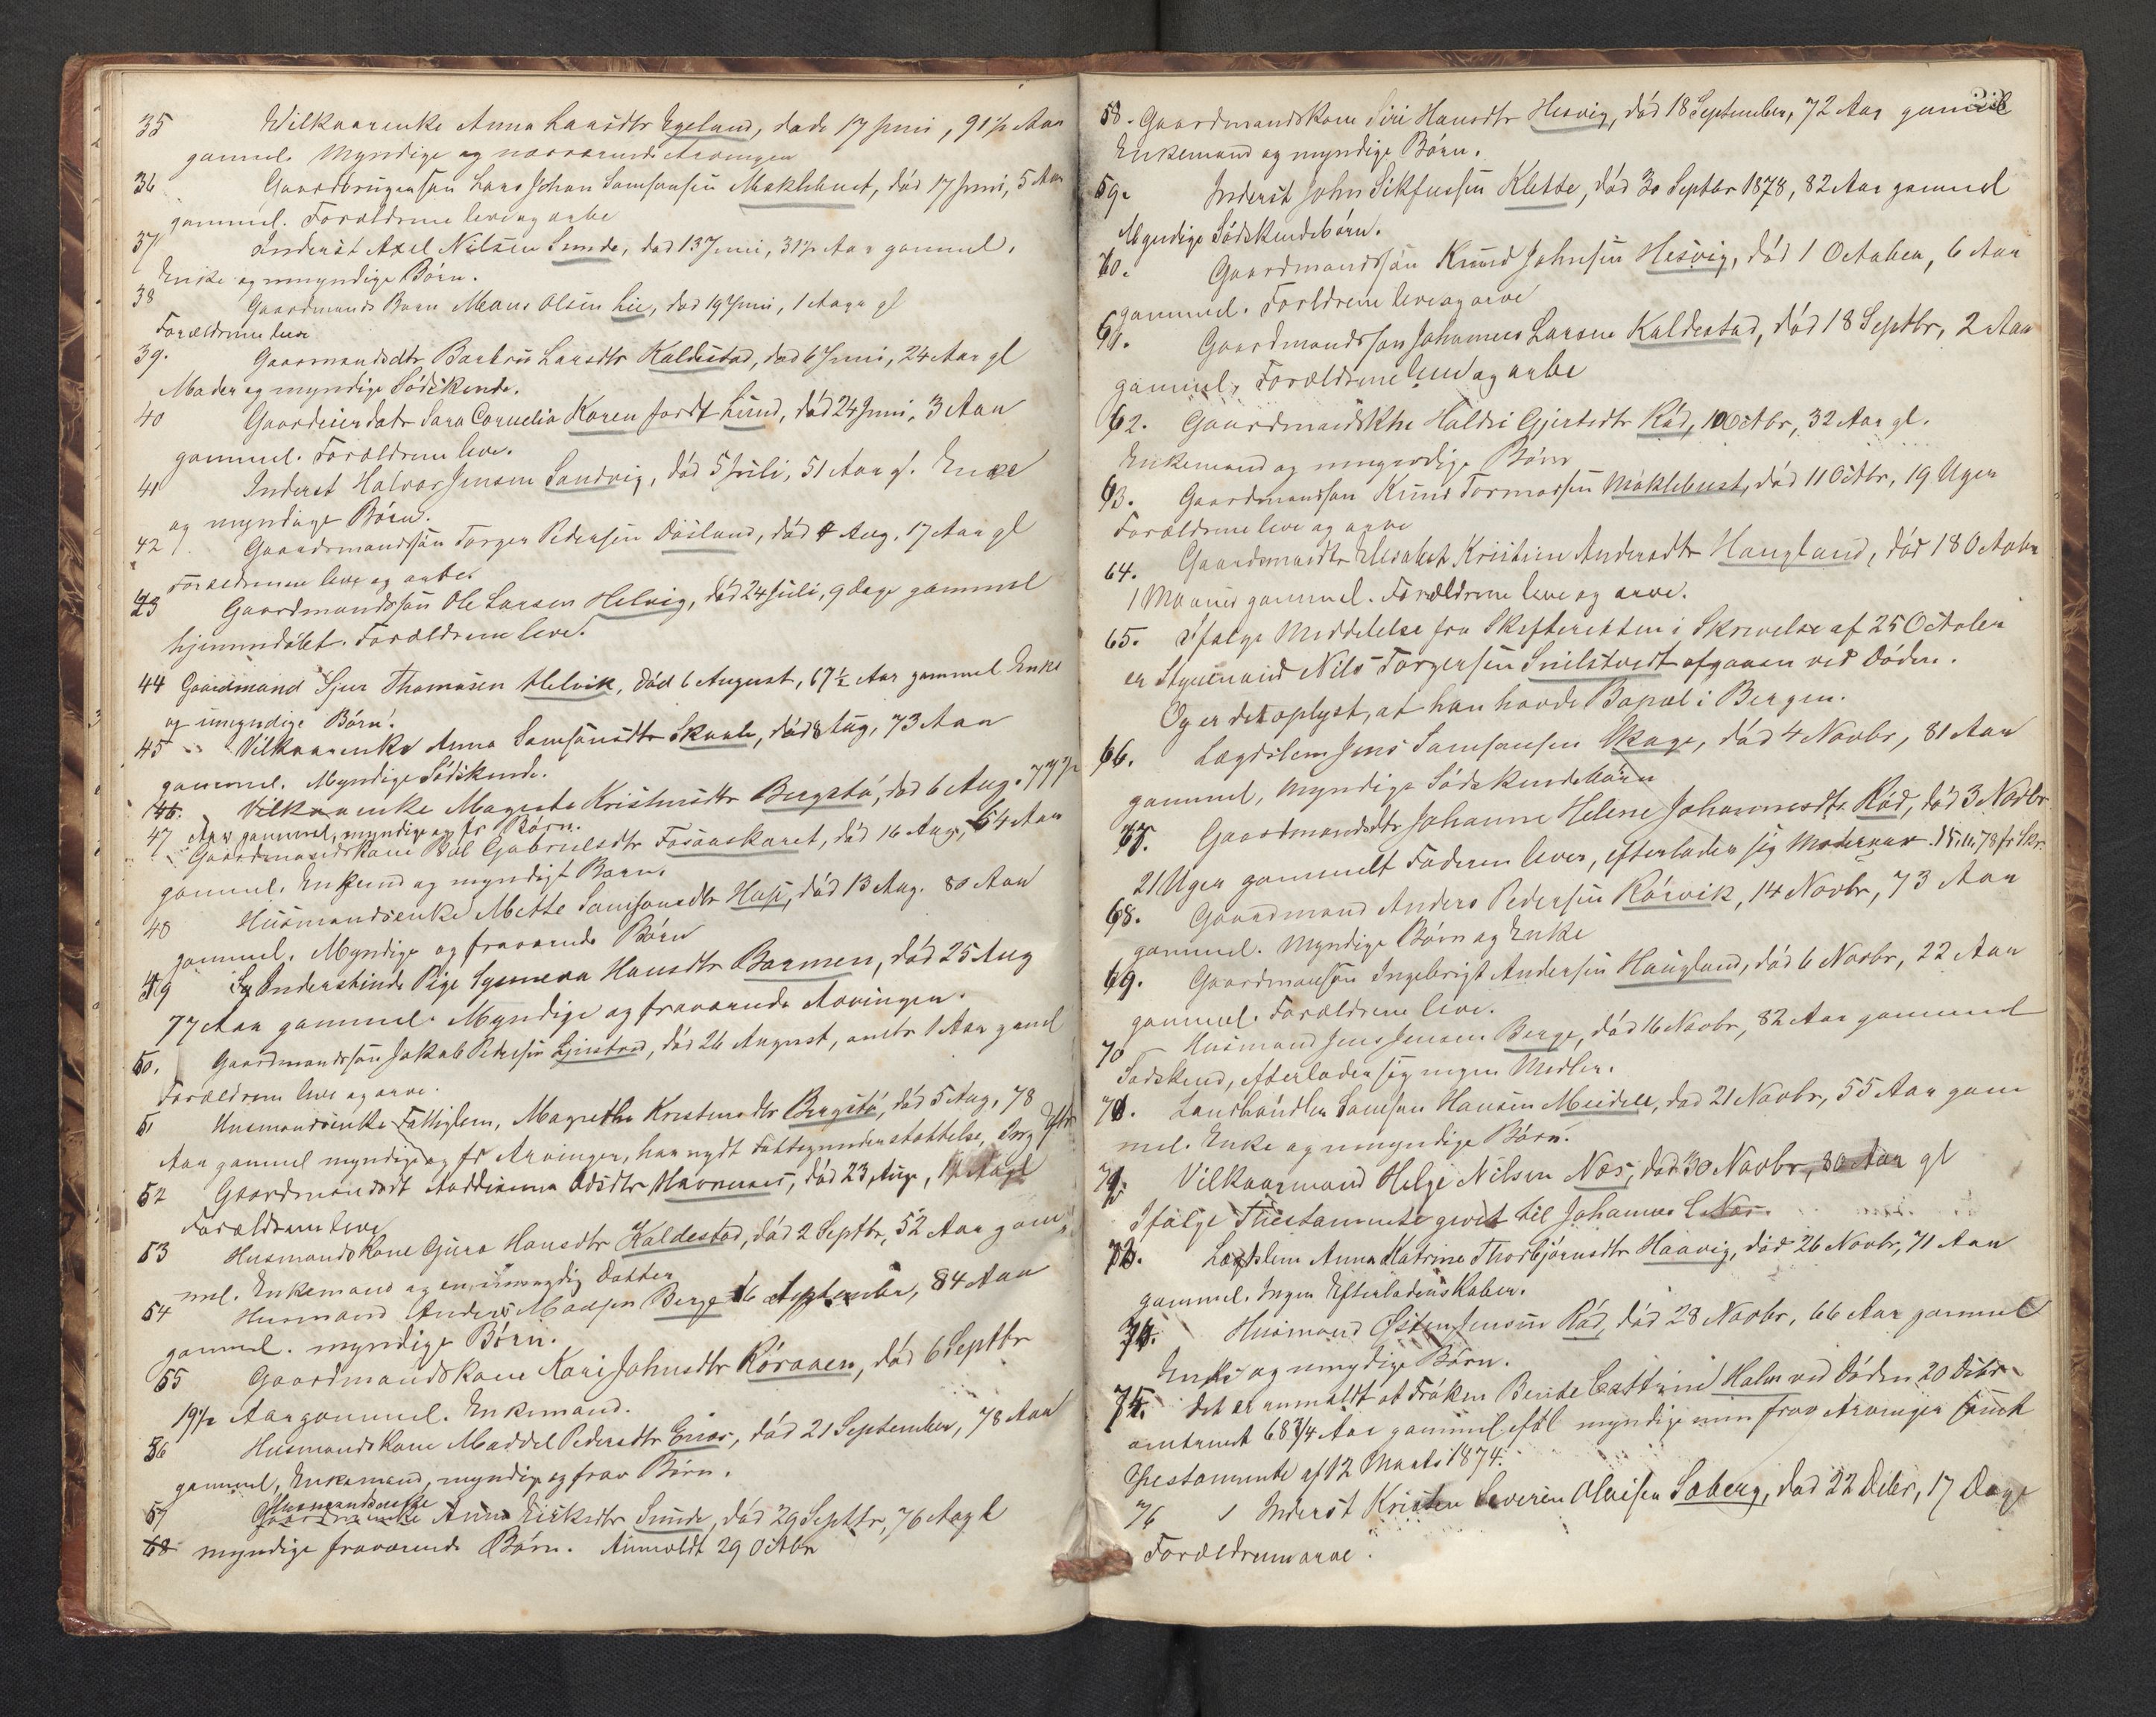 35 Wilkaarenke Anna Larsdtr Egeland, døde 17 Juni, 91½ Aar
gammel. Myndige og nærværende Arvinger
36 Gaardbrugersøn Lars Johan Samsonsen Møklebust, død 17 Juni, 5 Aar
gammel. Forældrene leve og arve
37 Inderst Axel Nilsen Sunde, død 13 Juni, 31½ Aar gammel.
Enke og umyndige Børn.
38 Gaardmands Barn Mons Olsen Lie, død 19 Juni, 1 Aar gl
Forældrene leve
39. Gaarmandsdtr Barbru Larsdtr Kaldestad, død 6 Juni, 24 Aar gl
Moder og myndige Sødskende.
40 Gaardeierdatr Sara Cornelia Karen fordt Lund, død 24 Juni, 3 Aar
gammel. Forældrene leve.
41 Inderst Halvor Jensen Sandvig, død 5 Juli, 51 Aar gl. Enke
og myndige Børn.
42 Gaardmandssøn Torger Pedersen Døsland, død 4 Aug. 17 Aar gl
Forældrene leve og arve.
43 Gaardmandssøn Ole Larsen Helvig, død 24 Juli, 9 Dage gammel
hjemmedøbt. Forældrene leve.
44 Gaardmand Sjur Thomasen Helvik, død 6 August, 67½ Aar gammel Enke
og umyndige Børn.
45 Vilkaarenke Anna Samsonsdtr Skaale, død 8 Aug, 73 Aar
gammel. Myndige Sødskende.
46. Vilkaarenke Magrete Kristensdtr Bergstø, død 6 Aug. 77½
Aar gammel, myndige og fr Børn.
47 Gaardmandskone Bol Gabrielsdtr Fosaaskaret, død 16 Aug, 64 Aar
gammel. Enkemd og myndigt Barn.
48 Husmandsenke Mette Samsonsdtr Huse, død 13 Aug. 80 Aar
gammel. Myndige og fraværende Børn
49 Inderstinde Pige Synneva Hansdtr Barmen, død 25 Aug
77 Aar gammel. Myndige og fraværende Arvinger.
50. Gaardmandssøn Jakob Petersen Listad, død 26 August, omtr 1 Aar gamel
Forældrene leve og arve.
51 Husmandsenke Fattiglem, Magrethe Kristensdtr Bergstø, død 5 Aug, 78
Aar gammel myndige og fr Arvinger, har nydt Fattigunderstøttelse,
52 Gaardmandsdt Olsdtr Havrenæs, død 23 Aug,
Forældrene leve
53 Husmandskone Gjura Hansdtr Kaldestad, død 2 Septbr, 52 Aar gam-
mel. Enkemand og en umyndig Datter
54 Husmand Anders Madsen Berge 16 September, 84 Aar
gammel. myndige Børn.
55 Gaardmandskone Kari Johnsdtr Røraaen, død 6 Septbr
19½ Aar gammel. Enkemand.
56 Husmandskone Maddel Pedersdtr Enæs, død 21 September, 78 Aar
gammel, Enkemand, myndige og frav Børn.
57 Husmandsenke Anna Eriksdtr Sunde, død 29 Septbr, 76 Aar gl
58 myndige fraværende Børn. Anmeldt 29 Octbr
58. Gaardmandskone Siri Hansdtr Hesvig, død 18 September, 72 Aar gammel
Enkemand og myndige Børn.
59. Inderst John Sikfussen Klette, død 30 Septbr 1878, 82 Aar gammel
Myndige Sødskendebørn.
60. Gaardmandssøn Knud Johnsen Hesvig, død 1 October, 6 Aar
gammel. Forldrene leve og arve
61. Gaardmandssøn Johannes Larsen Kaldestad, død 18 Septbr, 2 Aar
gammel, Forældrene leve og arve
62. Gaardmandskne Haldri Gjertsdtr Rød, 10 Octbr, 32 Aar gl.
Enkemand og umyndige Børn
63. Gaardmandsøn Knud Tormodsen Møklebust, død 11 Octbr, 19 Uger
Forældrene leve og arve
64. Gaardmandsdtr Elisabet Kristine Andersdtr Haugland, død 18 October
1 Maaned gammel. Forældrene leve og arve.
65. Ifølge Meddelelse fra Skifteretten i Skrivelse af 25 October
er Styrmand Nils Torgersen Snilstvedt afgaaen ved Døden.
Og er det oplyst, at han havde Bopæl i Bergen.
66. Lægdslem Jens Samsonsen Skage, død 4 Novbr, 81 Aar
gammel, Myndige Sødskendebørn
67. Gaardmandsdtr Johanne Helene Johannesdtr Rød, død 3 Novbr
21 Uger gammelt Faderen lever, efterlader sig Modernarv
68. Gaardmand Anders Pedersen Rørvik, 14 Novbr, 73 Aar
gammel. Myndige Børn og Enke
69. Gaardmansøn Ingebrigt Andersen Haugland, død 6 Novbr, 22 Aar
gammel. Forældrene leve.
70 Husmand Jens Jensen Berge, død 16 Novbr, 82 Aar gammel
Sødskend, efterlader sig ingen Midler.
71. Landhandler Samson Hansen Meidell, død 21 Novbr, 55 Aar gam
mel. Enke og umyndige Børn.
72. Vilkaarmand Helge Nilsen Næs, død 30 Novbr, 80 Aar gl
Ifølge Thestamente givet til Johannes L Næs.
73. Lægdslem Anna Katrine Thorbjørnsdtr Haavig, død 26 Novbr, 71 Aar
gammel. Ingen Efterladenskaber.
74. Husmand Østen Jensen Rød, død 28 Novbr, 66 Aar gammel
Enke og umyndige Børn.
75. Det er anmeldt at Frøken Bendte Cattrine Holm ved Døden 20 Debr
omtrent 68 3/4 Aar gammel myndige men frav Arvinger samt
Thestamente af 12 Marts 1874.
76 Inderst Kristen Severin Olaisen Soberg, død 22 Debr, 17 Dage
Forældrene arve.